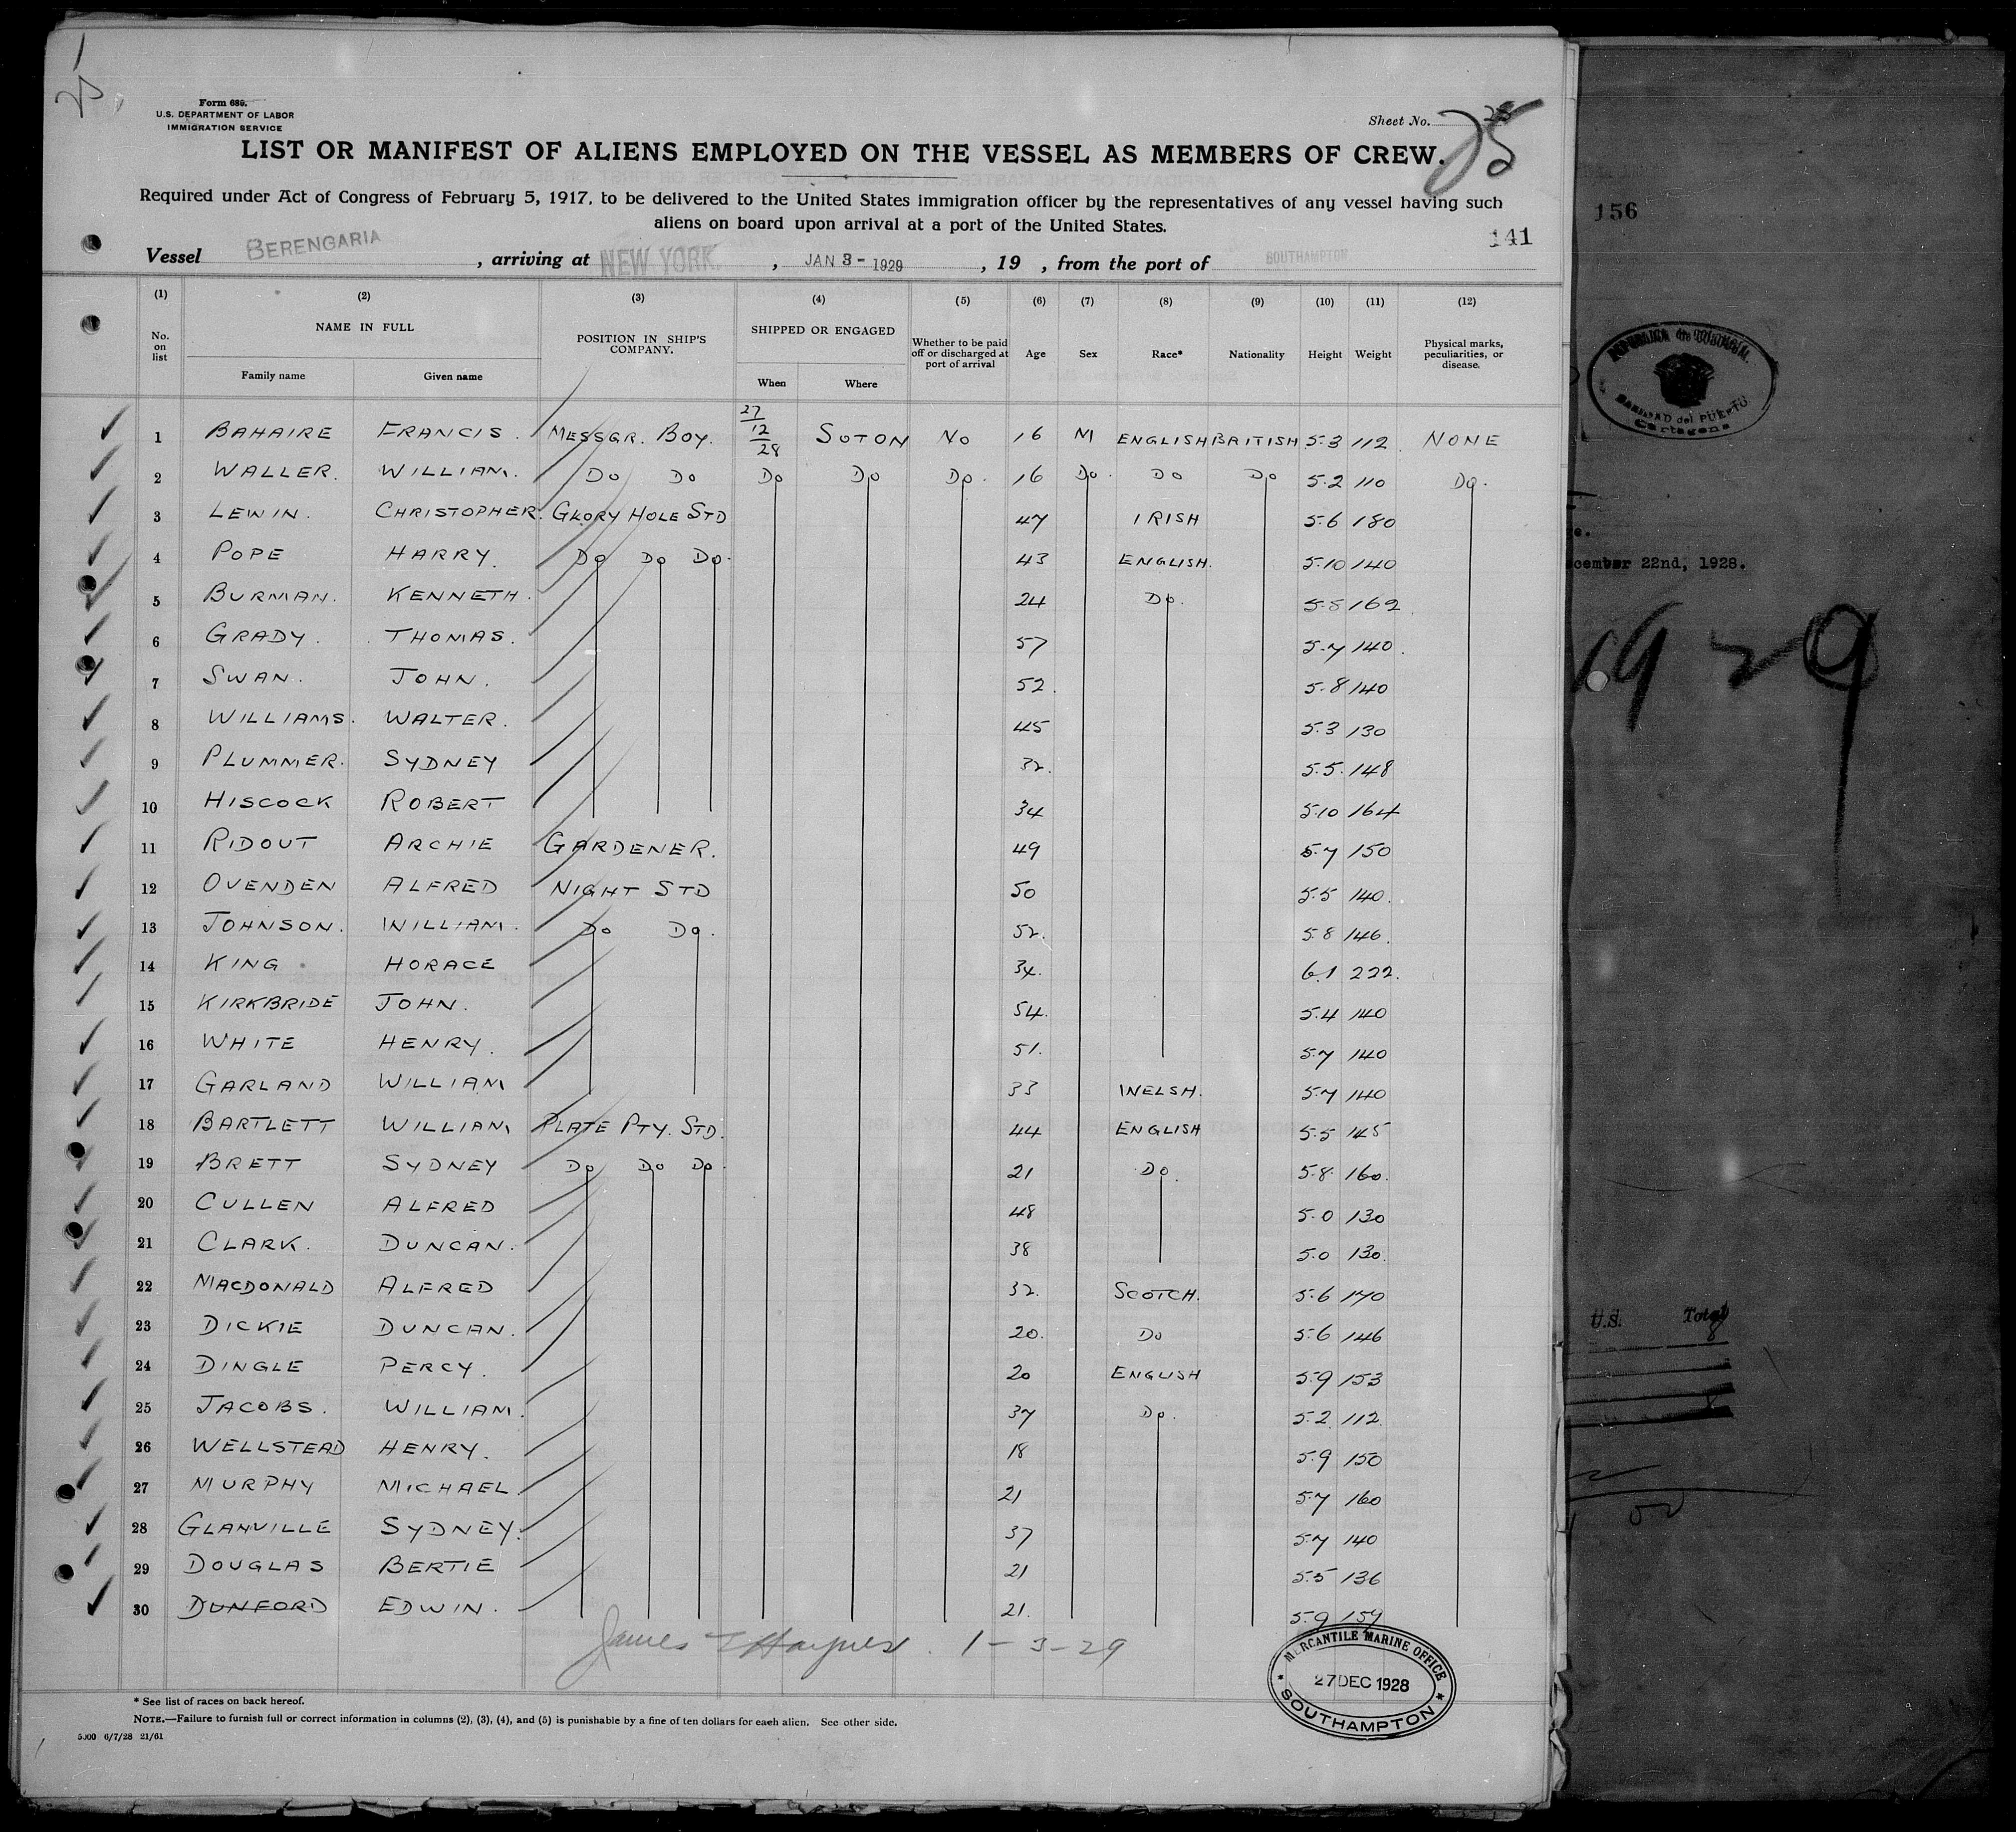 25
Form 689.
U.S. DEPARTMENT OF LABOR
IMMIGRATION SERVICE
Sheet No. 25
LIST OR MANIFEST OF ALIENS EMPLOYED ON THE VESSEL AS MEMBERS OF CREW.
Required under Act of Congress of February 5, 1917, to be delivered to the United States immigration officer by the representatives of any vessel having such
aliens on board upon arrival at a port of the United States.
141
Vessel BERENGARIA, arriving at NEW YORK, JAN 3 - 1929, 19 , from the port of SOUTHAMPTON
(1) (2) (3) (4) (5) (6) (7) (8) (9) (10) (11) (12)
No. on list NAME IN FULL POSITION IN SHIP'S COMPANY. SHIPPED OR ENGAGED Whether to be paid off or discharged at port of arrival Age Sex Race* Nationality Height Weight Physical marks, peculiarities, or disease.
Family name Given name When Where
1 BAHAIRE FRANCIS. MESSGR. BOY. 27/12/28 SOTON NO 16 M ENGLISH BRITISH 5.3 112 NONE
2 WALLER. WILLIAM. DO DO DO DO DO. 16 DO. DO DO 5.2 110 DO.
3 LEWIN. CHRISTOPHER. GLORY HOLE STD 47 IRISH 5.6 180
4 POPE HARRY. DO DO DO. 43 ENGLISH. 5.10 140
5 BURMAN. KENNETH. 24 DO. 5.5 162
6 GRADY. THOMAS. 57 5.7 140.
7 SWAN. JOHN. 52. 5.8 140
8 WILLIAMS. WALTER. 45 5.3 130
9 PLUMMER. SYDNEY 32. 5.5. 148
10 HISCOCK ROBERT 34 5.10 164
11 RIDOUT ARCHIE GARDENER. 49 5.7 150
12 OVENDEN ALFRED NIGHT STD 50 5.5 140.
13 JOHNSON. WILLIAM. DO DO. 52. 5.8 146.
14 KING HORACE 34. 6.1 222.
15 KIRKBRIDE JOHN. 54. 5.4 140
16 WHITE HENRY. 51. 5.7 140
17 GARLAND WILLIAM 33 WELSH. 5.7 140
18 BARTLETT WILLIAM PLATE PTY. STD. 44 ENGLISH 5.5 145
19 BRETT SYDNEY DO DO DO. 21 DO. 5.8. 160.
20 CULLEN ALFRED 48 5.0 130
21 CLARK. DUNCAN. 38 5.0 130.
22 MACDONALD ALFRED 32. SCOTCH. 5.6 170
23 DICKIE DUNCAN. 20. DO 5.6 146
24 DINGLE PERCY. 20 ENGLISH 5.9 153
25 JACOBS. WILLIAM. 37 DO. 5.2 112
26 WELLSTEAD HENRY. 18 5.9 150
27 MURPHY MICHAEL. 21 5.7 160
28 GLANVILLE SYDNEY. 37 5.7 140
29 DOUGLAS BERTIE 21 5.5 136
30 DUNFORD EDWIN. 21. 5.9 159
James T Haynes. 1-3-29
MERCANTILE MARINE OFFICE
27 DEC 1928
SOUTHAMPTON
* See list of races on back hereof.
NOTE.—Failure to furnish full or correct information in columns (2), (3), (4), and (5) is punishable by a fine of ten dollars for each alien. See other side.
5000 6/7/28 21/61
156
REPUBLICA de COLOMBIA.
SANIDAD del PUERTO
Cartagena
cember 22nd, 1928.
1929
U.S. Total